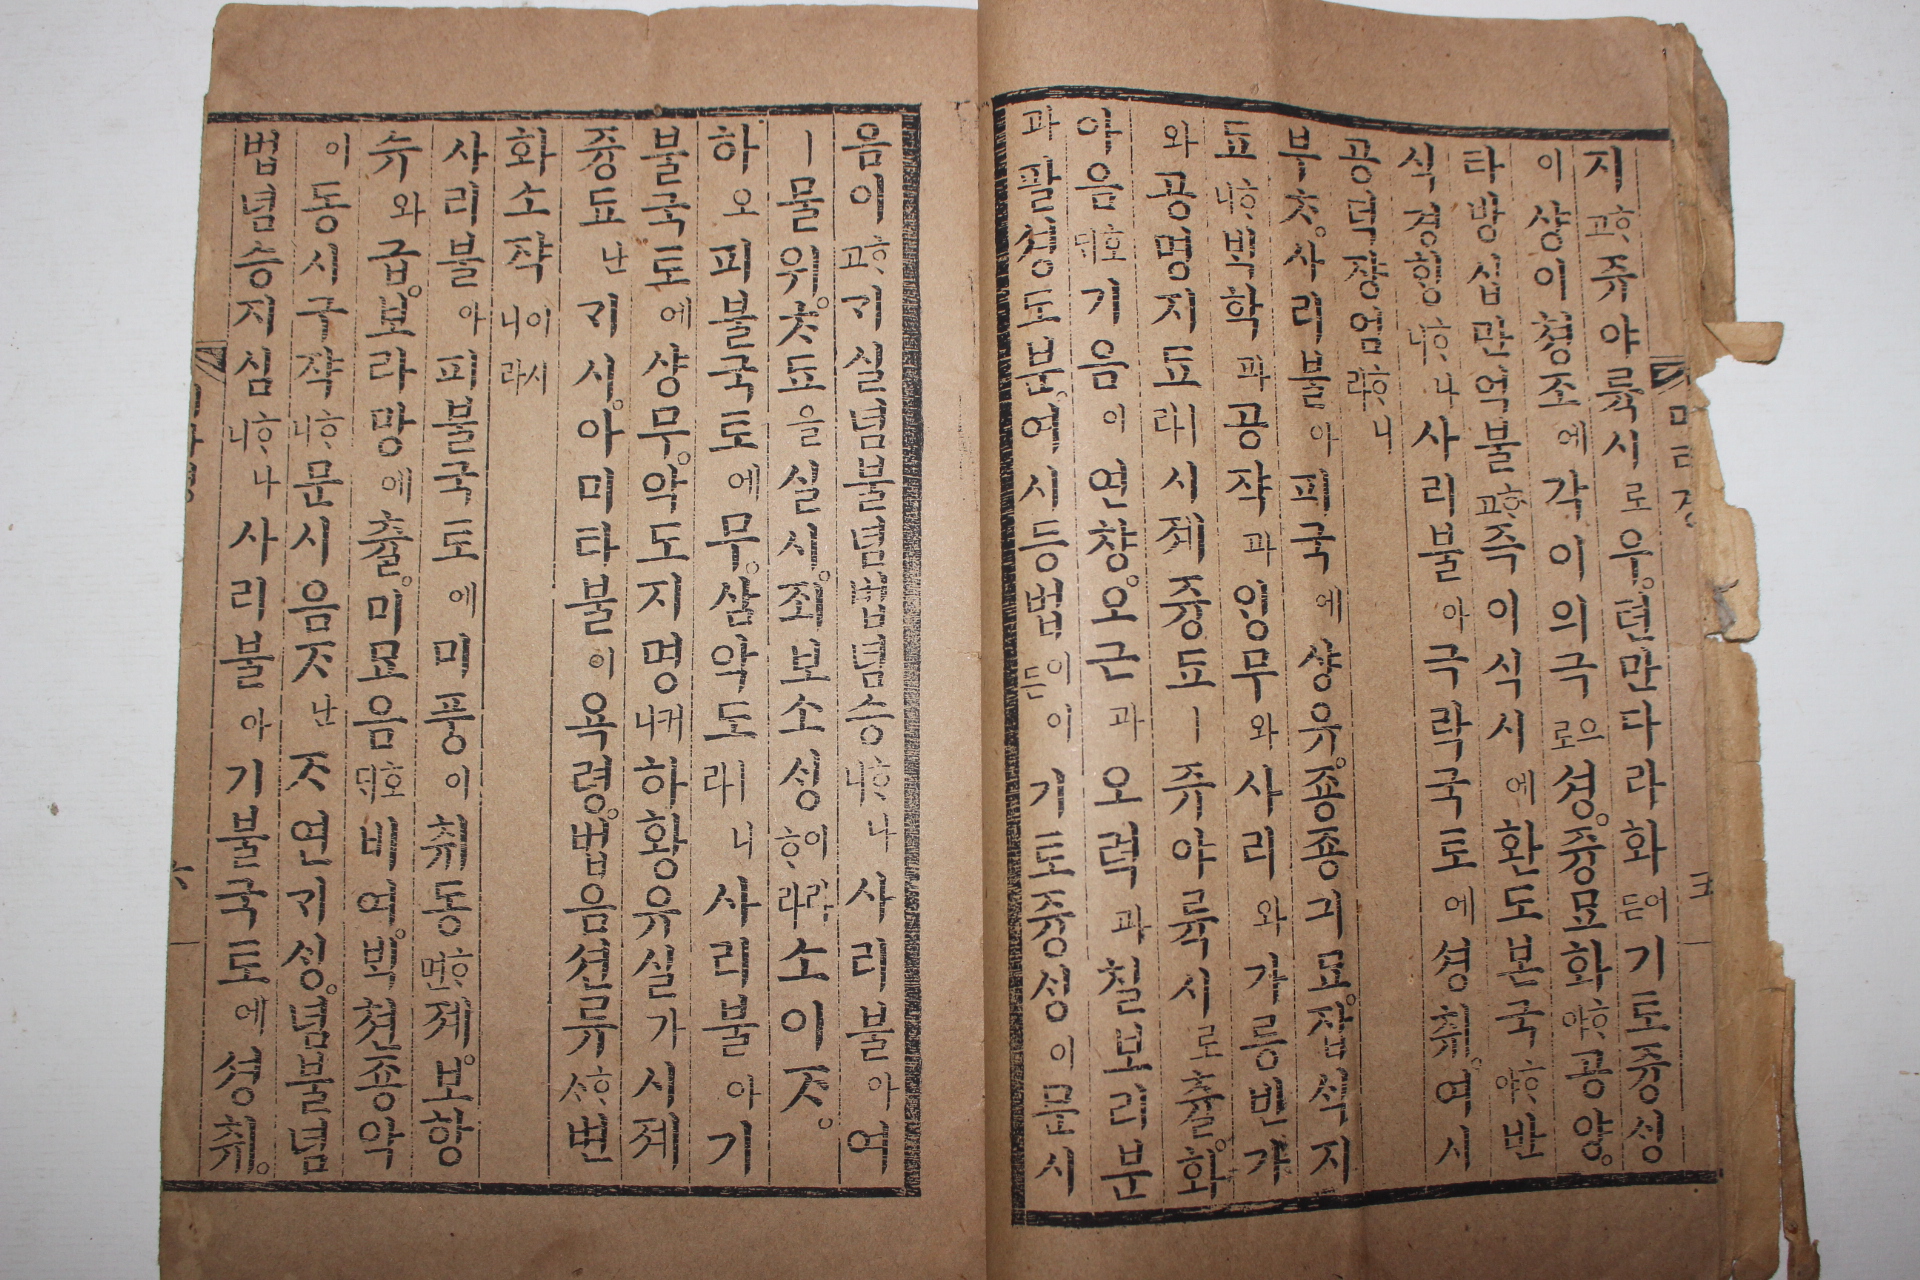 지고ᄒᆞ쥬야륙시로우。텬만타라화듣어기도즁ᄉᆡᆼ
이샹이쳥조에각이의극로으셩。즁묘화야ᄒᆞ공양。
타방십만억불고ᄒᆞ즉이식시에환도본국야ᄒᆞ반
식경ᄒᆡᆼ니ᄒᆞ나사리불아극락국토에셩취。여시
공덕쟝엄라ᄒᆞ니
부ᄎᆞ。사리불아피국에샹유。죵죵긔묘。잡ᄉᆡᆨ지
됴니ᄒᆞᄇᆡᆨ학과공쟉과잉무와사리와가릉빈가
와공명지됴라ㅣ시졔즁됴ㅣ쥬야륙시로츌。화
아음ᄃᆡ호기음이연챵。오근과오력과칠보리분
과팔셩도분。여시등법든이이기토즁ᄉᆡᆼ이문시
음이고ᄒᆞᄀᆡ실념불념법념승니ᄒᆞ나사리불아여
ㅣ물위。ᄎᆞ됴을실시。죄보소ᄉᆡᆼᄒᆞ이라라소이ᄌᆞ。
하오피불국토에무。삼악도라ㅣ니사리불아기
불국토에샹무。악도지명니커하황유실가시졔
즁됴난ᄀᆡ시。아미타불이욕령。법음션류ᄉᆞᄒᆞ변
화소쟉니이라시
사리불아피불국토에미풍이취동면ᄒᆞ졔。보ᄒᆡᆼ
슈와급。보라망에츌。미묘음ᄃᆡ호비여。ᄇᆡᆨ쳔죵악
이동시구쟉니ᄒᆞ문시음ᄌᆞ난ᄌᆞ연ᄀᆡᄉᆡᆼ。념불념
법념승지심니ᄒᆞ나사리불아기불국토에셩취。